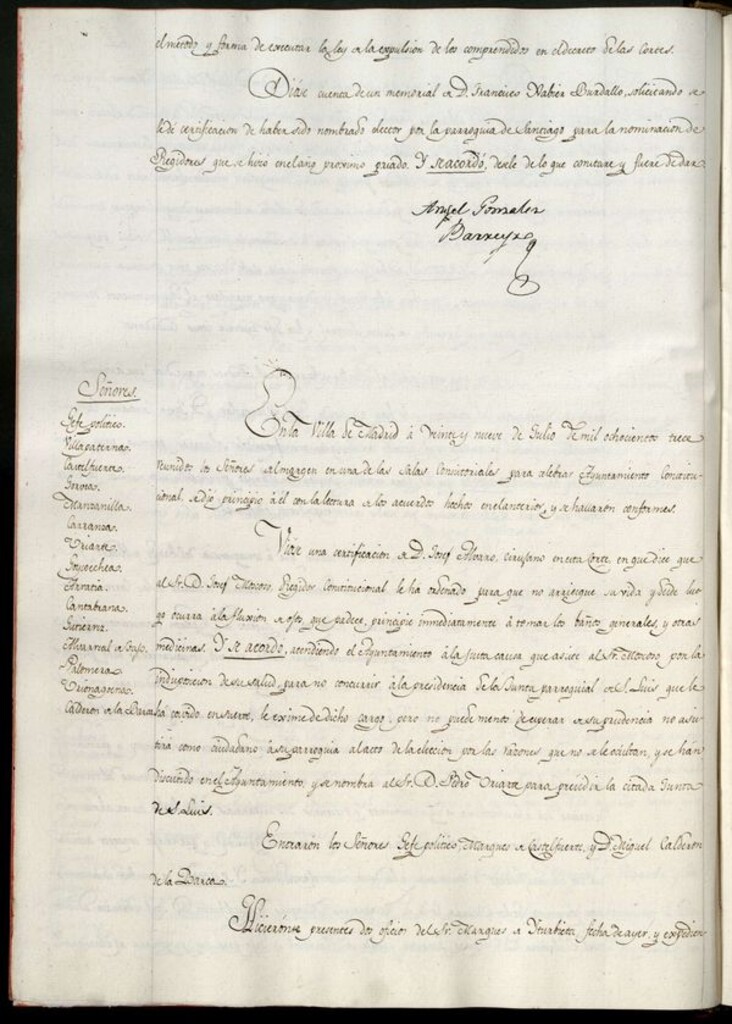 el método y forma de executar la ley a la expulsion de los comprendidos en el decreto de las Cortes.
Dióse cuenta de un memorial de D. Francisco Xabier Burdallo, solicitando se
le dé certificacion de haber sido nombrado elector por la parroquia de Santiago para la nominacion de
Regidores que se hizo en el año proximo pasado. Y se acordó, desele de lo que constare y fuere de dar.
Angel Gonzalez
Barreyro
Señores.
Gefe politico.
Villapaterna.
Castelfuerte.
Goróta.
Manzanilla.
Carranza.
Uriarte.
Goycochea.
Arratia.
Cantabrana.
Gutierrez.
Palomera.
Buenagente.
Calderon de la Barca
En la Villa de Madrid á veinte y nueve de Julio de mil ochocientos trece
reunidos los Señores al margen en una de las Salas Consistoriales para celebrar Ayuntamiento Constitu-
cional, se dió principio á él con la lectura de los acuerdos hechos en el anterior, y se hallaron conformes.
Vióse una certificacion de D. Josef Alvaro, cirujano en esta Corte, en que dice que
al Sr. D. Josef Moscoso, Regidor Constitucional le ha ordenado para que no arriesgue su vida y desde lue-
go ocurra á la fluxion de ojos, que padece, principie inmediatamente á tomar los baños generales, y otras
medicinas. Y se acordó, atendiendo el Ayuntamiento á la justa causa que asiste al Sr. Moscoso por la
indisposicion de su salud, para no concurrir á la presidencia de la Junta parroquial de S. Luis que le
ha cavido en suerte, le exime de dicho cargo, pero no puede menos de esperar de su prudencia no asis-
tirá como ciudadano á su parroquia al acto de la eleccion por las razones que no se le ocultan, y se han
discutido en el Ayuntamiento, y se nombra al Sr. D. Pedro Uriarte para presidir la citada Junta
de S. Luis.
Entraron los Señores Gefe politico, Marques de Castelfuerte, y D. Miguel Calderon
de la Barca.
Hicieronse presentes dos oficios del Sr. Marques de Yturbieta, fecha de ayer, y expedien-